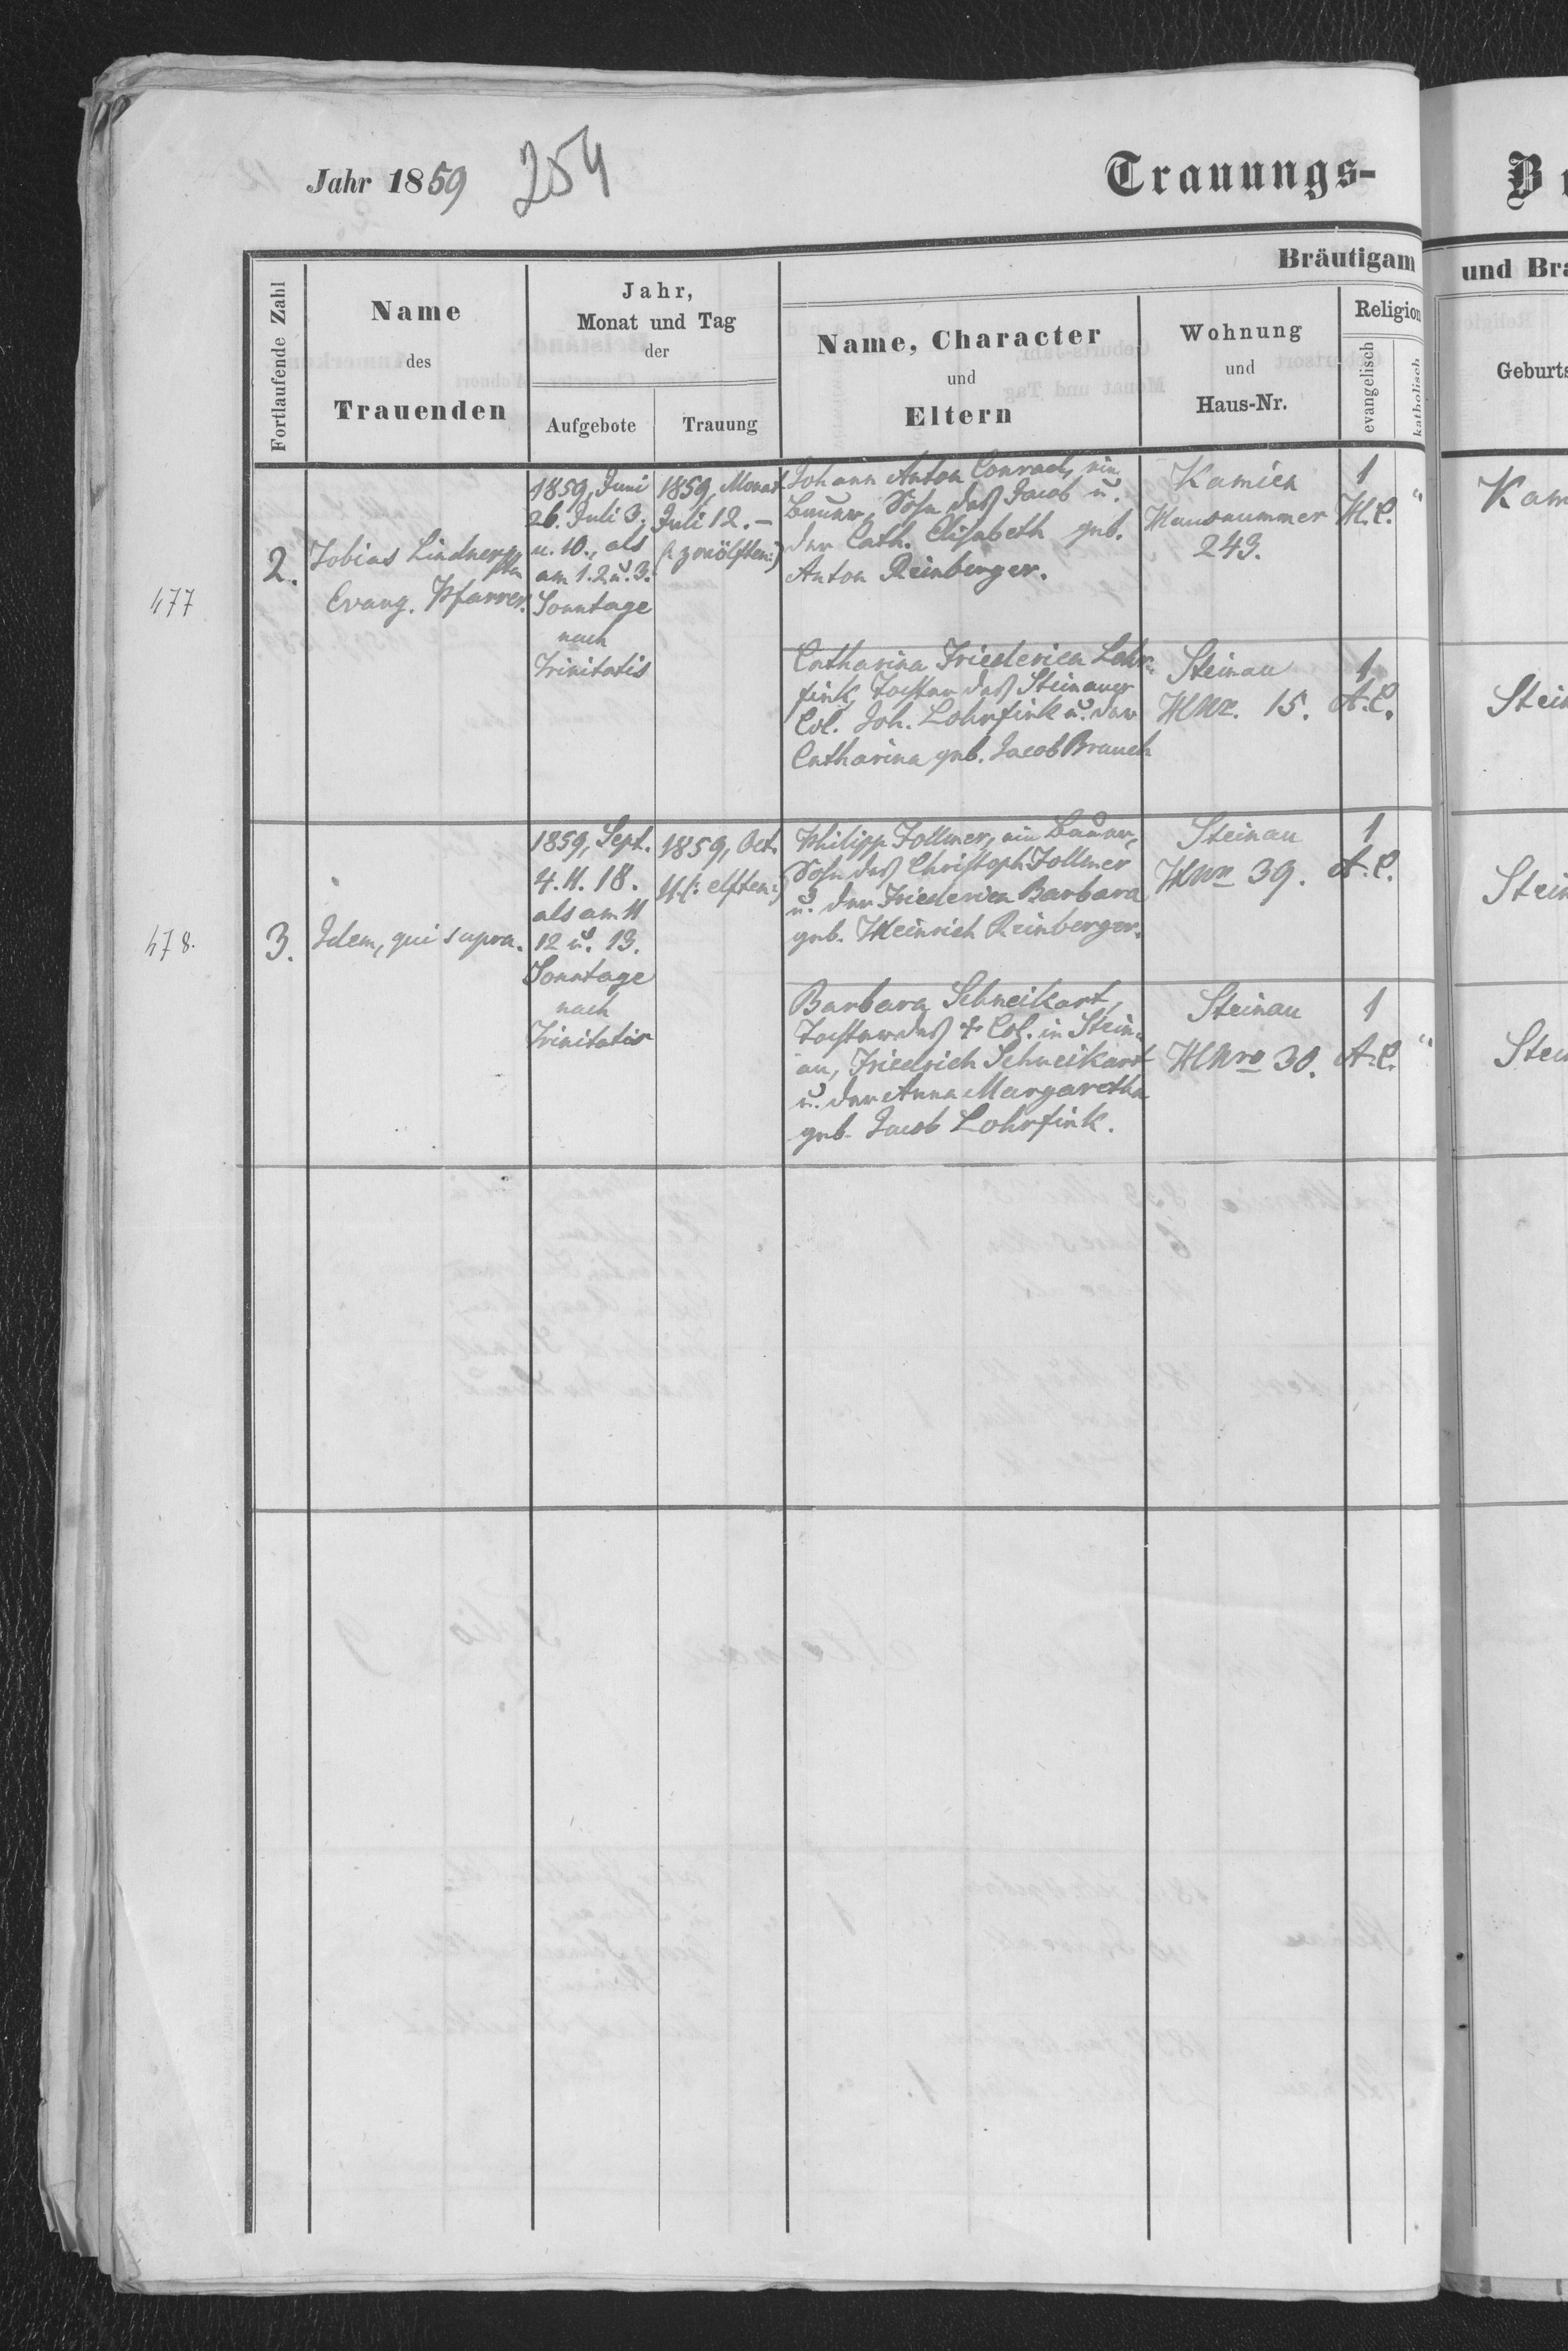 Jahr 1859 254
Trauungs-
Bräutigam
Fortlaufende Zahl
Name
des
Trauenden
Jahr,
Monat und Tag
der
Aufgebote
Trauung
Name, Character
und
Eltern
Wohnung
und
Haus-Nr.
Religion
evangelisch
katholisch
477
2.
Tobias Lindner
Evang. Pfarrer.
1859, Juni
26. Juli 3.
u. 10., als
am 1. 2 u. 3.
Sonntage
nach
Trinitatis
1859, Monat
Juli 12. –
(: zwölften:)
Johann Anton Conrad, ein
Bauer, Sohn des Jacob u.
der Cath. Elisabeth geb.
Anton Reinberger.
Kamien
Hausnummer
249.
1
H.C. "
Catharina Friederica Lohr=
fink, Tochter des Steinauer
Col. Joh. Lohrfink u. der
Catharina geb. Jacob Brauch
Steinau
HNr. 15.
1
A.C.
478.
3.
Idem, qui supra.
1859, Sept.
4. 11. 18.
als am 11
12 u. 13.
Sonntage
nach
Trinitatis
1859, Oct.
11 (: elften:)
Philipp Follmer, ein Bauer,
Sohn des Christoph Follmer
u. der Friederica Barbara
geb. Heinrich Reinberger.
Steinau
HNro 39.
1
A.C.
Barbara Schneikart,
Tochter des + Col. in Stein=
au, Friedrich Schneikart
u. der Anna Margaretha
geb. Jacob Lohrfink.
Steinau
HNro 30.
1
A.C. "
und Bra
Geburts
Kam
Stein
Stein
Stein